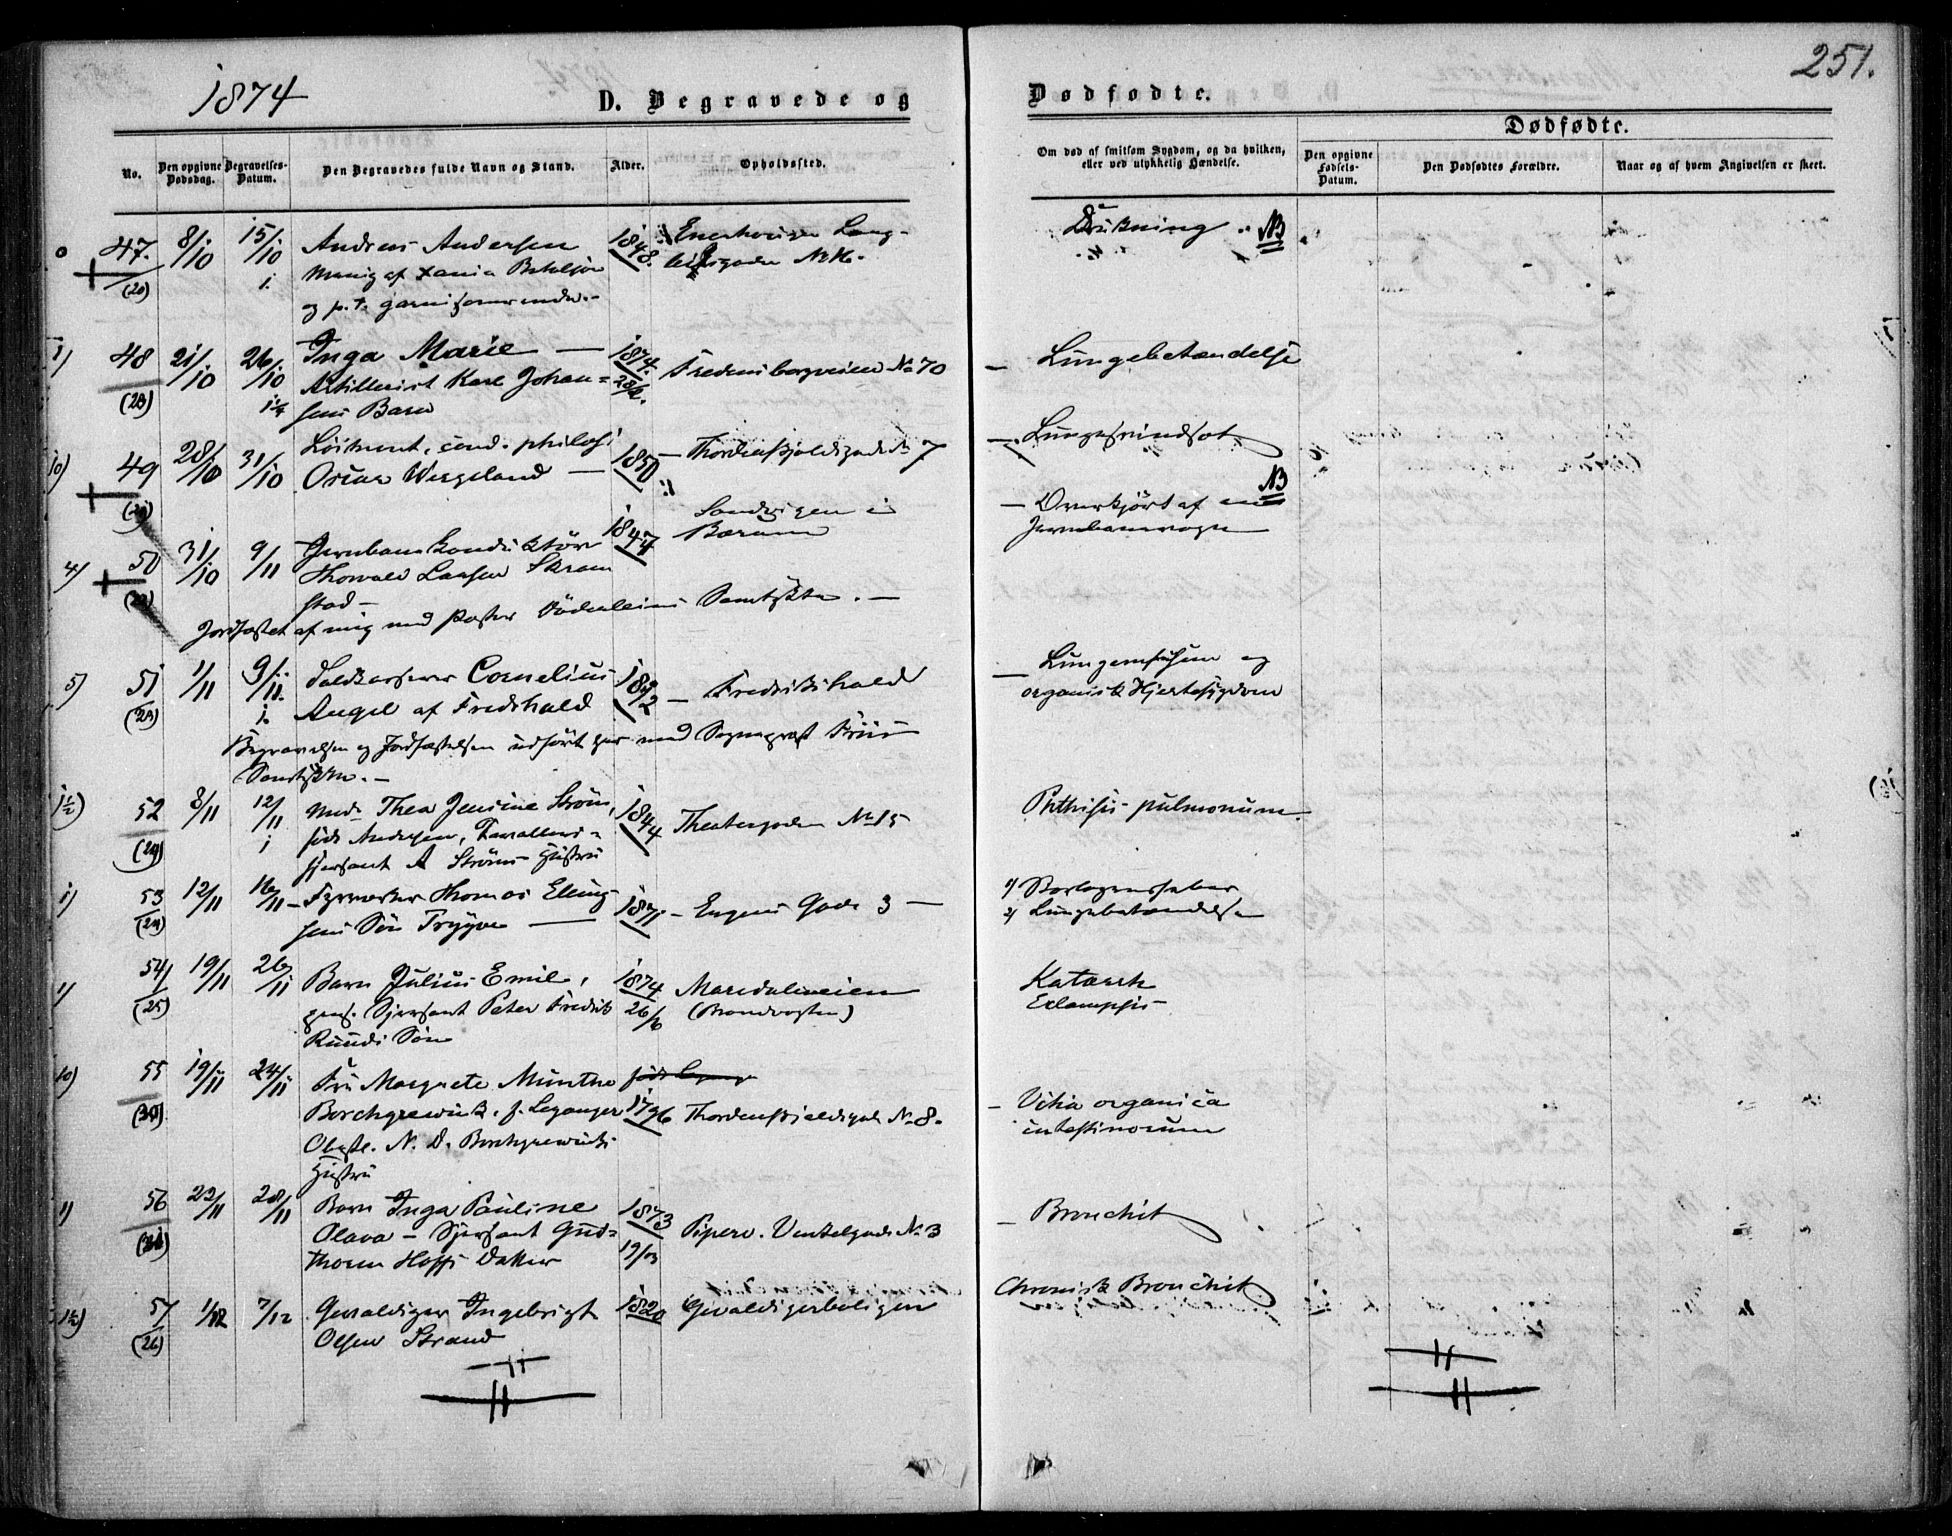 1874
D. Begravede og
Dødfødte.
251.
No.
Den opgivne Dødsdag.
Begravelses-Datum.
Den Begravedes fulde Navn og Stand.
Alder.
Opholdssted.
Om død af smitsom Sygdom, og da hvilken, eller ved ulykkelig Hændelse.
Dødfødte.
Den opgivne Fødsels-Datum.
Den Dødfødtes Forældre.
Naar og af hvem Angivelsen er skeet.
47. 8/10 15/10 Andreas Andersen 1848. Enerhougen Lang-
(20) Menig af
og p. t. garnisonerende.-
Drukning NB
1) 48 21/10 26/10 Inga Marie — 1874. Fredensborgveien No 70
(23) Artillerist Karl Johan-
sens Barn
Lungebetændelse
10) 49 28/10 31/10 Løitnent, cand. philos. 1850 Thordenskjoldsgade 7
Oscar Wergeland —
Lungesvindsot
4) 50 31/10 9/11 Jernbane Konduktör 1847 Sandvigen i
Thorvald Larsen Skram Bærum
stad -
Overkjørt af en NB
Jernbanevogn
Jordfæstet af mig med Pastor Samtykke. —
5) 51 1/11 9/11 Toldkasserer Cornelius 1802 — Fredrikshald
Angel af Fredshald
Lungeemfysem og
organisk Hjertesygdom
Begravelsen og Jordfæstelsen udført her med Sogneprest
Samtykke. —
1½) 52 8/11 12/11 Mad. Thea Jensine Strøm, 1844 Theatergaden No 15
(24) født Andersen, Kavalleri-
sjersant A Strøms Hustru
Phthisis pulmonum.
1) 53 12/11 16/11 Fyrverker Thomas Elling- 1871. — Eugens Gade 3 —
(24) sens Søn Trygve —
1) Barlagenssaber
2) Lungebetændelse
1) 54 19/11 26/11 Barn Julius Emil, 1874 Maridalsveien
(25) Sjersant Peter Fredrik 26/6 (Brandvagten)
Ruuds Søn
Katarrh
Eclampsis
10) 55 19/11 24/11 Fru Margrete Munthe
Borchgrewink. f. Leganger 1796 Thordenskjoldsgade No 8.
Oberstl. N. D. Borchgrewinks
Hustru
Vitia organica
intestinorum
1) 56 23/11 28/11 Barn Inga Pauline 1873 Piperv. Ventelgade No 3
Olava — Sjersant Gud- 19/03
thorm Hoffs Datter
Bronchit
1½) 57 1/12 7/12 Gevaldiger Ingebrigt 1820 Gevaldigerboligen
(26) Olsen Strand
Chronisk Bronchit